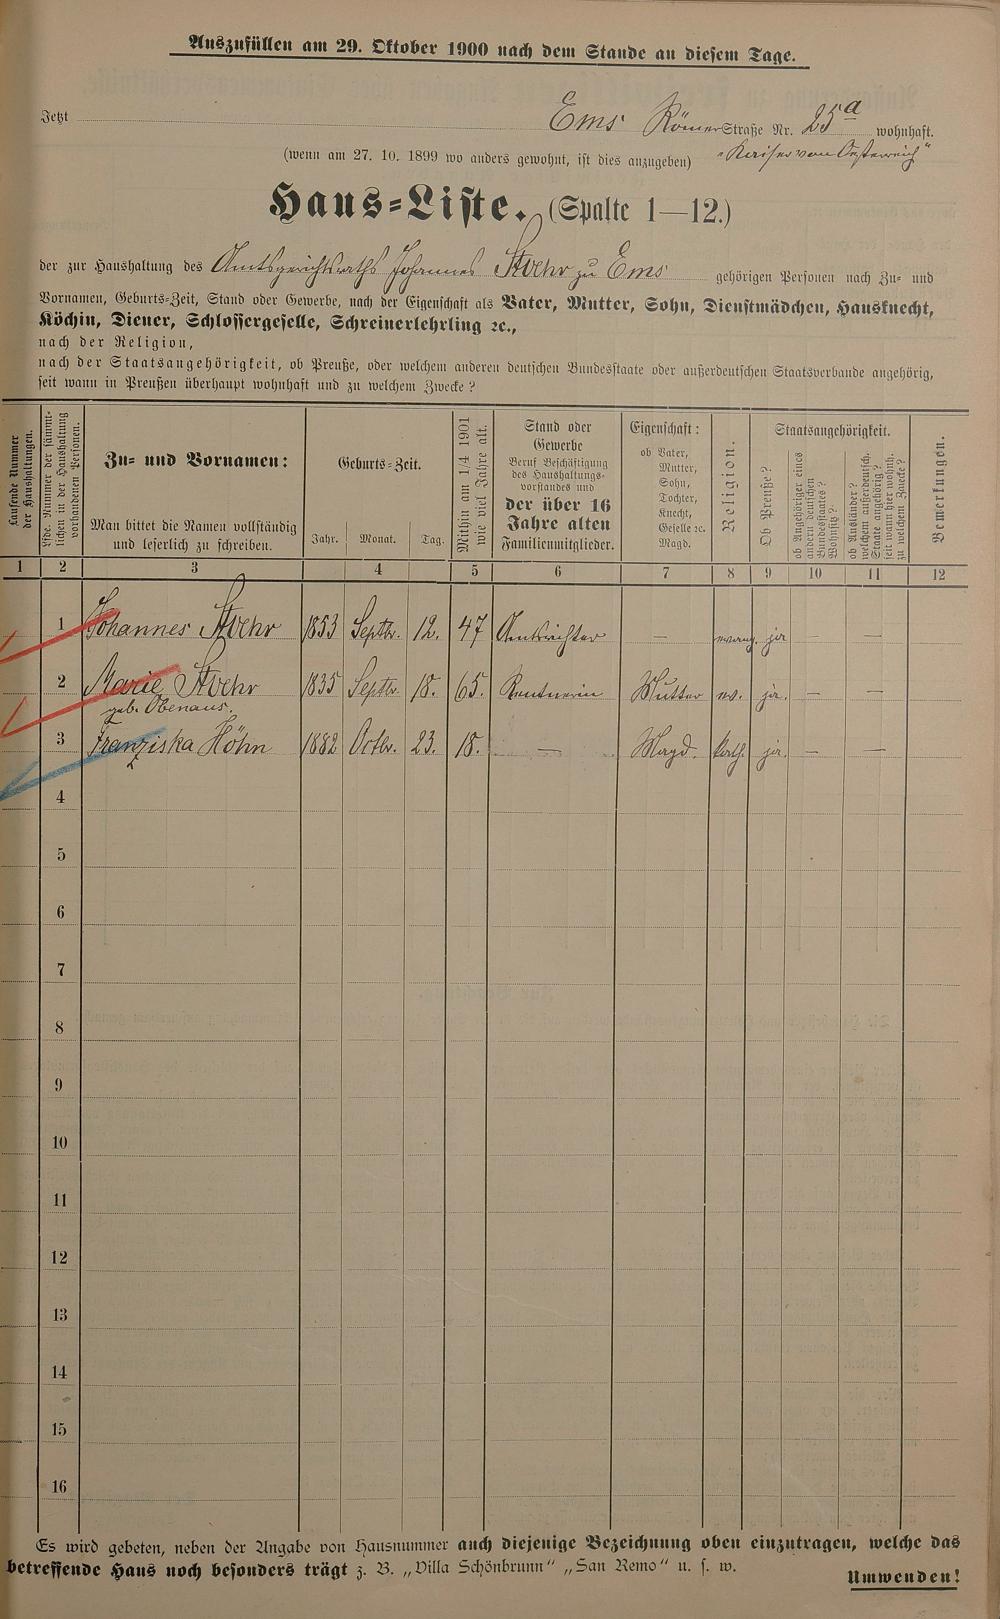 Auszufüllen am 29. Oktober 1900 nach dem Stande an diesem Tage.
Jetzt Ems Römer Straße Nr. 25a wohnhaft.
(wenn am 27. 10. 1899 wo anders gewohnt, ist dies anzugeben) "Kaiser von Oesterreich"
Haus=Liste. (Spalte 1—12.)
der zur Haushaltung des Amtsgerichtsraths Johannes Stoehr zu Ems gehörigen Personen nach Zu= und
Vornamen, Geburts=Zeit, Stand oder Gewerbe, nach der Eigenschaft als Vater, Mutter, Sohn, Dienstmädchen, Hausknecht,
Köchin, Diener, Schlossergeselle, Schreinerlehrling ꝛc.,
nach der Religion,
nach der Staatsangehörigkeit, ob Preuße, oder welchem anderen deutschen Bundesstaate oder außerdeutschen Staatsverbande angehörig,
seit wann in Preußen überhaupt wohnhaft und zu welchem Zwecke?
Laufende Nummer
der Haushaltungen.
Lfde. Nummer der sämmt-
lichen in der Haushaltung
vorhandenen Personen.
Zu= und Vornamen:
Man bittet die Namen vollständig
und leserlich zu schreiben.
Geburts=Zeit.
Jahr. Monat. Tag.
Mithin am 1/4 1901
wie viel Jahre alt.
Stand oder
Gewerbe
Beruf Beschäftigung
des Haushaltungs-
vorstandes und
der über 16
Jahre alten
Familienmitglieder.
Eigenschaft:
ob Vater,
Mutter,
Sohn,
Tochter,
Knecht,
Geselle ꝛc.
Magd.
Religion.
Staatsangehörigkeit.
Ob Preuße?
ob Angehöriger eines
andern deutschen
Bundesstaates?
Wohnsitz?
ob Ausländer?
welchem außerdeutsch.
Staate angehörig?
seit wann hier wohnh.
zu welchem Zwecke?
Bemerkungen.
1 2 3 4 5 6 7 8 9 10 11 12
1 Johannes Stoehr 1853 Septbr. 12. 47 Amtsrichter — evang. ja —
2 Marie Stoehr 1835 Septbr. 18. 65. Rentnerin Mutter ev. ja. — —
geb. Obenaus.
3 Franziska Höhn 1882 Octbr. 23. 18. — Magd. kath. ja. — —
4
5
6
7
8
9
10
11
12
13
14
15
16
Es wird gebeten, neben der Angabe von Hausnummer auch diejenige Bezeichnung oben einzutragen, welche das
betreffende Haus noch besonders trägt z. B. „Villa Schönbrunn“ „San Remo“ u. s. w.
Umwenden!